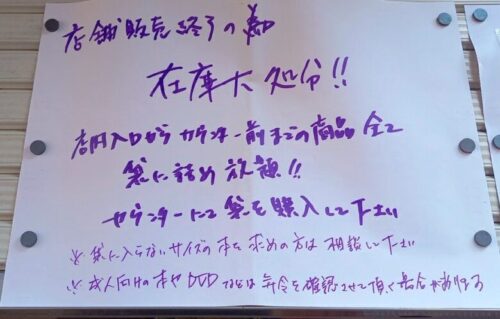 店舗販売終了の為
在庫大処分!!
店内入口からカウンター前までの商品全て
袋に詰め放題!!
カウンターにて袋を購入して下さい
※袋に入らないサイズの本を求めの方は相談して下さい
※成人向けの本やDVDなどは年令を確認させて頂く場合があります